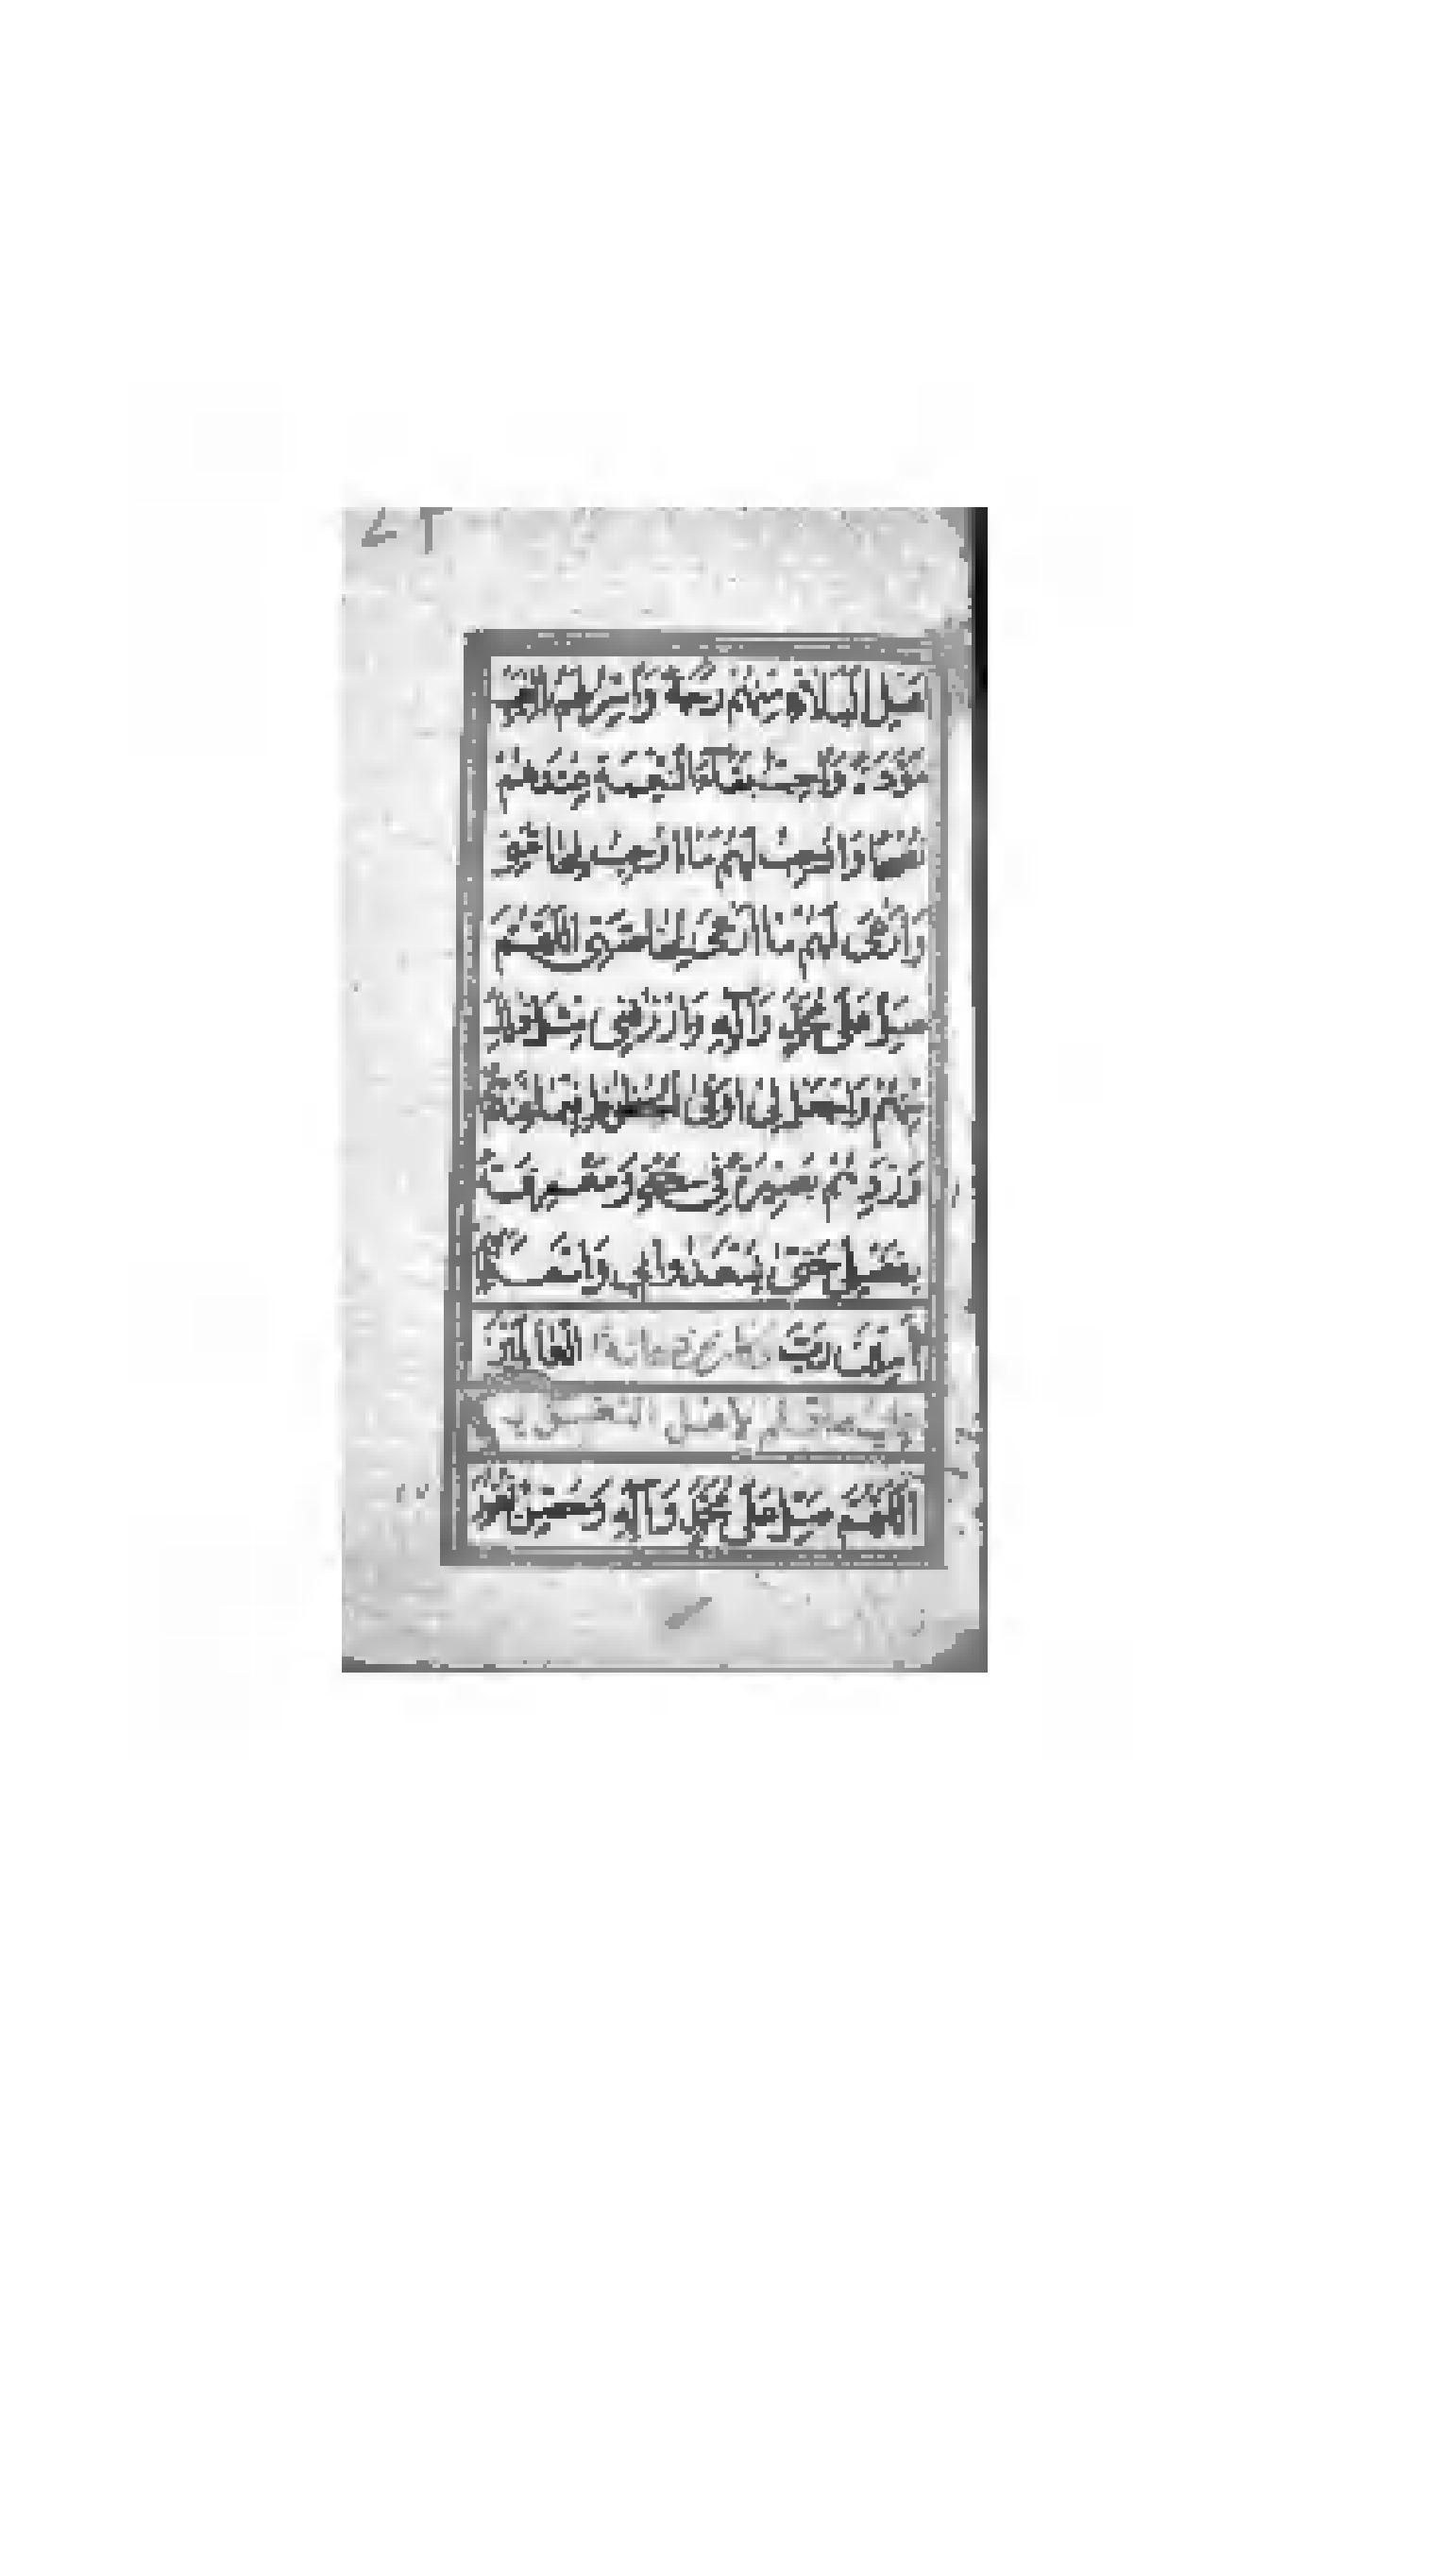 اهل البلاء منهم رحمة واسر لهم بالغيب
مودة واحب بقاء النعمة عندهم
نصحا واوجب لهم ما اوجب لحامتي
وارعى لهم ما ارعى لخاصتي اللهم
صل على محمد وآله وارزقني مثل ذلك
منهم واجعل لي اوفى الحظوظ فيما عندهم
وزدهم بصيرة في حقي ومعرفة
بفضلي حتى يسعدوا بي واسعد
آمين رب العالمين
عليه السلام لاهل الثغور
اللهم صل على محمد وآله وحصن ثغور